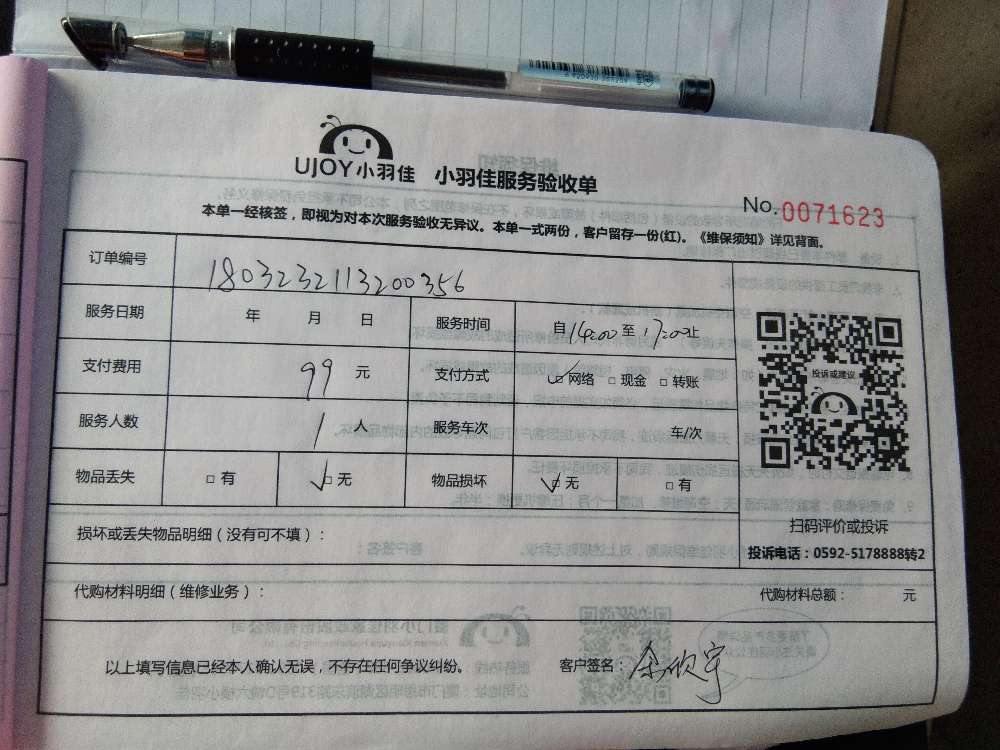 UJOY小羽佳 小羽佳服务验收单
No.0071623
本单一经核签，即视为对本次服务验收无异议。本单一式两份，客户留存一份(红)。《维保须知》详见背面。
订单编号 1803232113200356
服务日期 年 月 日 服务时间 自14:00至17:00止
支付费用 99 元 支付方式 ☑网络 □现金 □转账
服务人数 1 人 服务车次 车/次
物品丢失 □有 ☑无 物品损坏 ☑无 □有
投诉或建议
扫码评价或投诉
投诉电话：0592-5178888转2
损坏或丢失物品明细（没有可不填）：
代购材料明细（维修业务）： 代购材料总额： 元
以上填写信息已经本人确认无误，不存在任何争议纠纷。 客户签名：余欣宇